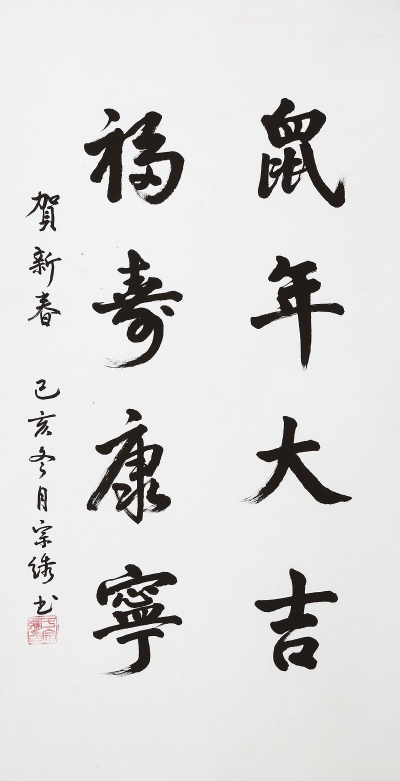 鼠年大吉
福寿康寧
賀新春 己亥冬月宗绣书